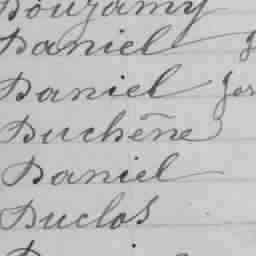 Bougamy
Daniel
Daniel
Duchêne
Daniel
Duclos